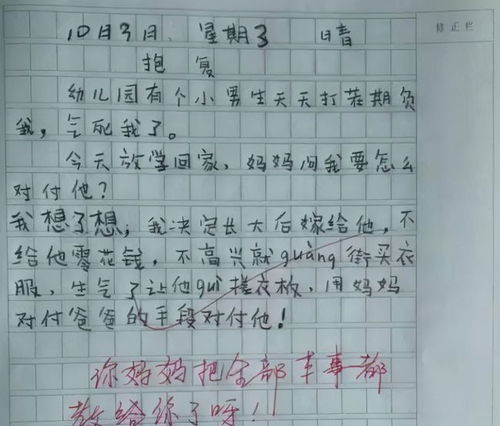 10月9日. 星期3 晴
修正栏
抱 复
幼儿园有个小男生天天打茬期负
我，气死我了。
今天放学回家，妈妈问我要怎么
对付他？
我想了想，我决定长大后嫁给他，不
给他零花钱，不高兴就guàng街买衣
服、生气了让他guì搓衣板，用妈妈
对付爸爸的手段对付他！
你妈妈把全部本事都
教给你了呀！